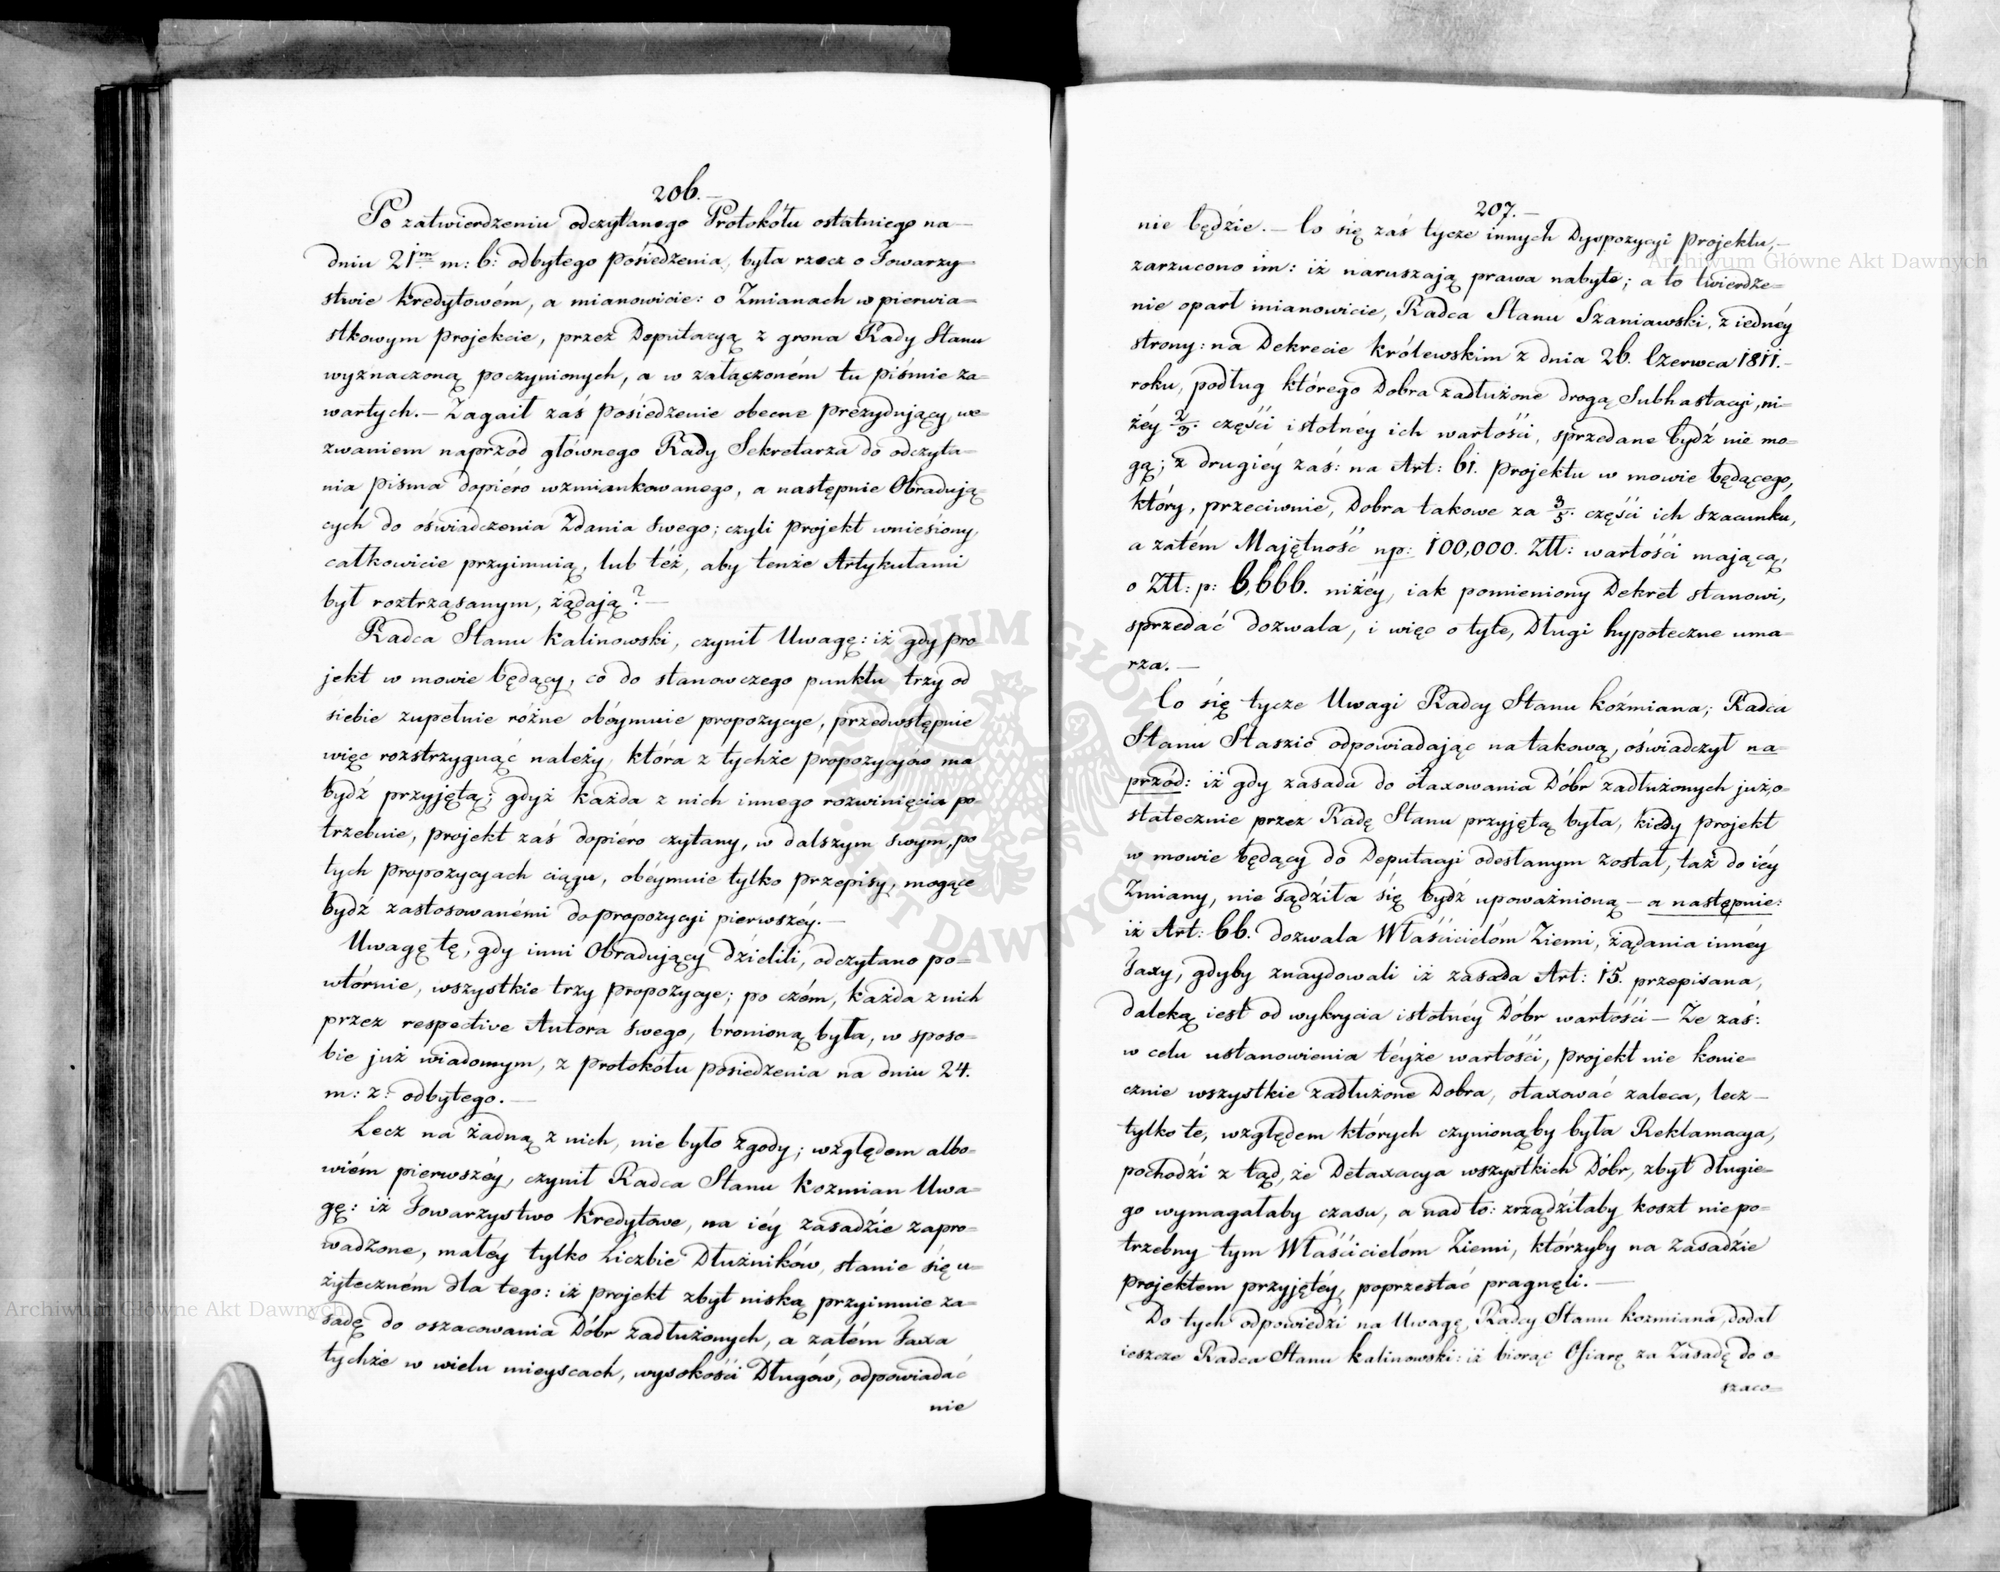 206.
Po zatwierdzeniu odczytanego Protokółu ostatniego na
dniu 21m m: b: odbytego posiedzenia, była rzecz o Towarzy=
stwie kredytowém, a mianowicie: o Zmianach w pierwia=
stkowym projekcie, przez Deputacyą z grona Rady Stanu
wyznaczoną poczynionych, a w załączoném tu piśmie za=
wartych. — Zagaił zaś posiedzenie obecne Prezydujący, we=
zwaniem naprzód głównego Rady Sekretarza do odczyta=
nia pisma dopiéro wzmiankowanego, a następnie Obradują=
cych do oświadczenia Zdania swego; czyli projekt wniesiony,
całkowicie przyimuią, lub też, aby tenże Artykułami
był roztrząsanym, żądają? —
Radca Stanu Kalinowski, czynił Uwagę: iż gdy pro
jekt w mowie będący, co do stanowczego punktu trzy od
siebie zupełnie różne obéymuie propozycye, przedwstępnie
więc rozstrzygnąć należy, która z tychże Propozycyów ma
bydź przyjętą; gdyż każda z nich innego rozwinięcia po=
trzebuie, projekt zaś dopiéro czytany, w dalszym swym, po
tych propozycyach ciągu, obéymuie tylko przepisy, mogące
bydź zastosowanémi do propozycyi pierwszéy. —
Uwagę tę, gdy inni Obradujący dzielili, odczytano po=
wtórnie, wszystkie trzy propozycye; po czém, każda z nich
przez respective Autora swego, bronioną była, w sposo=
bie już wiadomym, z Protokółu posiedzenia na dniu 24.
m: z: odbytego. —
Lecz na żadną z nich, nie było zgody; względem albo=
wiém pierwszéy, czynił Radca Stanu Kozmian Uwa=
gę: iż Towarzystwo kredytowe, na iéy zasadzie zapro=
wadzone, małéy tylko Liczbie Dłużników, stanie się u=
żyteczném dla tego: iż projekt zbyt niską przyimuie za=
sadę do oszacowania Dóbr zadłużonych, a zatém Taxa
tychże w wielu mieyscach, wysokości Długów, odpowiadać
nie
207.
nie będzie. — Co się zaś tycze innych Dyspozycyi projektu, —
zarzucono im: iż naruszają prawa nabyte; a to twierdze=
nie oparł mianowicie, Radca Stanu Szaniawski, z iednéy
strony: na Dekrecie Królewskim z dnia 26. Czerwca 1811. —
roku, podług którego Dobra zadłużone drogą Subhastacyi, ni=
żéy 2/3. części istotnéy ich wartości, sprzedane bydź nie mo=
gą; z drugiéy zaś: na Art: 61. projektu w mowie będącego,
który, przeciwnie, Dobra takowe za 3/5. części ich szacunku,
a zatém Majętność np: 100,000. Złł: wartości mającą,
o Złł: p: 6,666. niżéy, iak pomieniony Dekret stanowi,
sprzedać dozwala, i więc o tyle, Długi hypoteczne uma=
rza. —
Co się tycze Uwagi Radcy Stanu Koźmiana; Radca
Stanu Staszic odpowiadając na takową, oświadczył na=
przód: iż gdy zasada do otaxowania Dóbr zadłużonych już o=
statecznie przez Radę Stanu przyjętą była, kiedy projekt
w mowie będący do Deputacyi odesłanym został, taż do iéy
Zmiany, nie sądziła się bydź upoważnioną — a następnie:
iż Art: 66. dozwala Właścicielóm Ziemi, żądania innéy
Taxy, gdyby znaydowali iż zasada Art: 15. przepisana,
daleką iest od wykrycia istotnéy Dóbr wartości — Że zaś:
w celu ustanowienia téyże wartości, projekt nie konie=
cznie wszystkie zadłużone Dobra, otaxować zaleca, lecz —
tylko te, względem których czynionąby była Reklamacya,
pochodzi z tąd, że Detaxacya wszystkich Dóbr, zbyt długie=
go wymagałaby czasu, a nad to: zrządziłaby koszt niepo=
trzebny tym Właścicielóm Ziemi, którzyby na zasadzie
projektem przyjętéy, poprzestać pragnęli. —
Do tych odpowiedzi na Uwagę, Radcy Stanu Kozmiana, dodał
ieszcze Radca Stanu Kalinowski: iż biorąc Ofiarę za Zasadę do o=
szaco=
Archiwum Główne Akt Dawnych
Archiwum Główne Akt Dawnych
ARCHIWUM GŁÓWNE AKT DAWNYCH